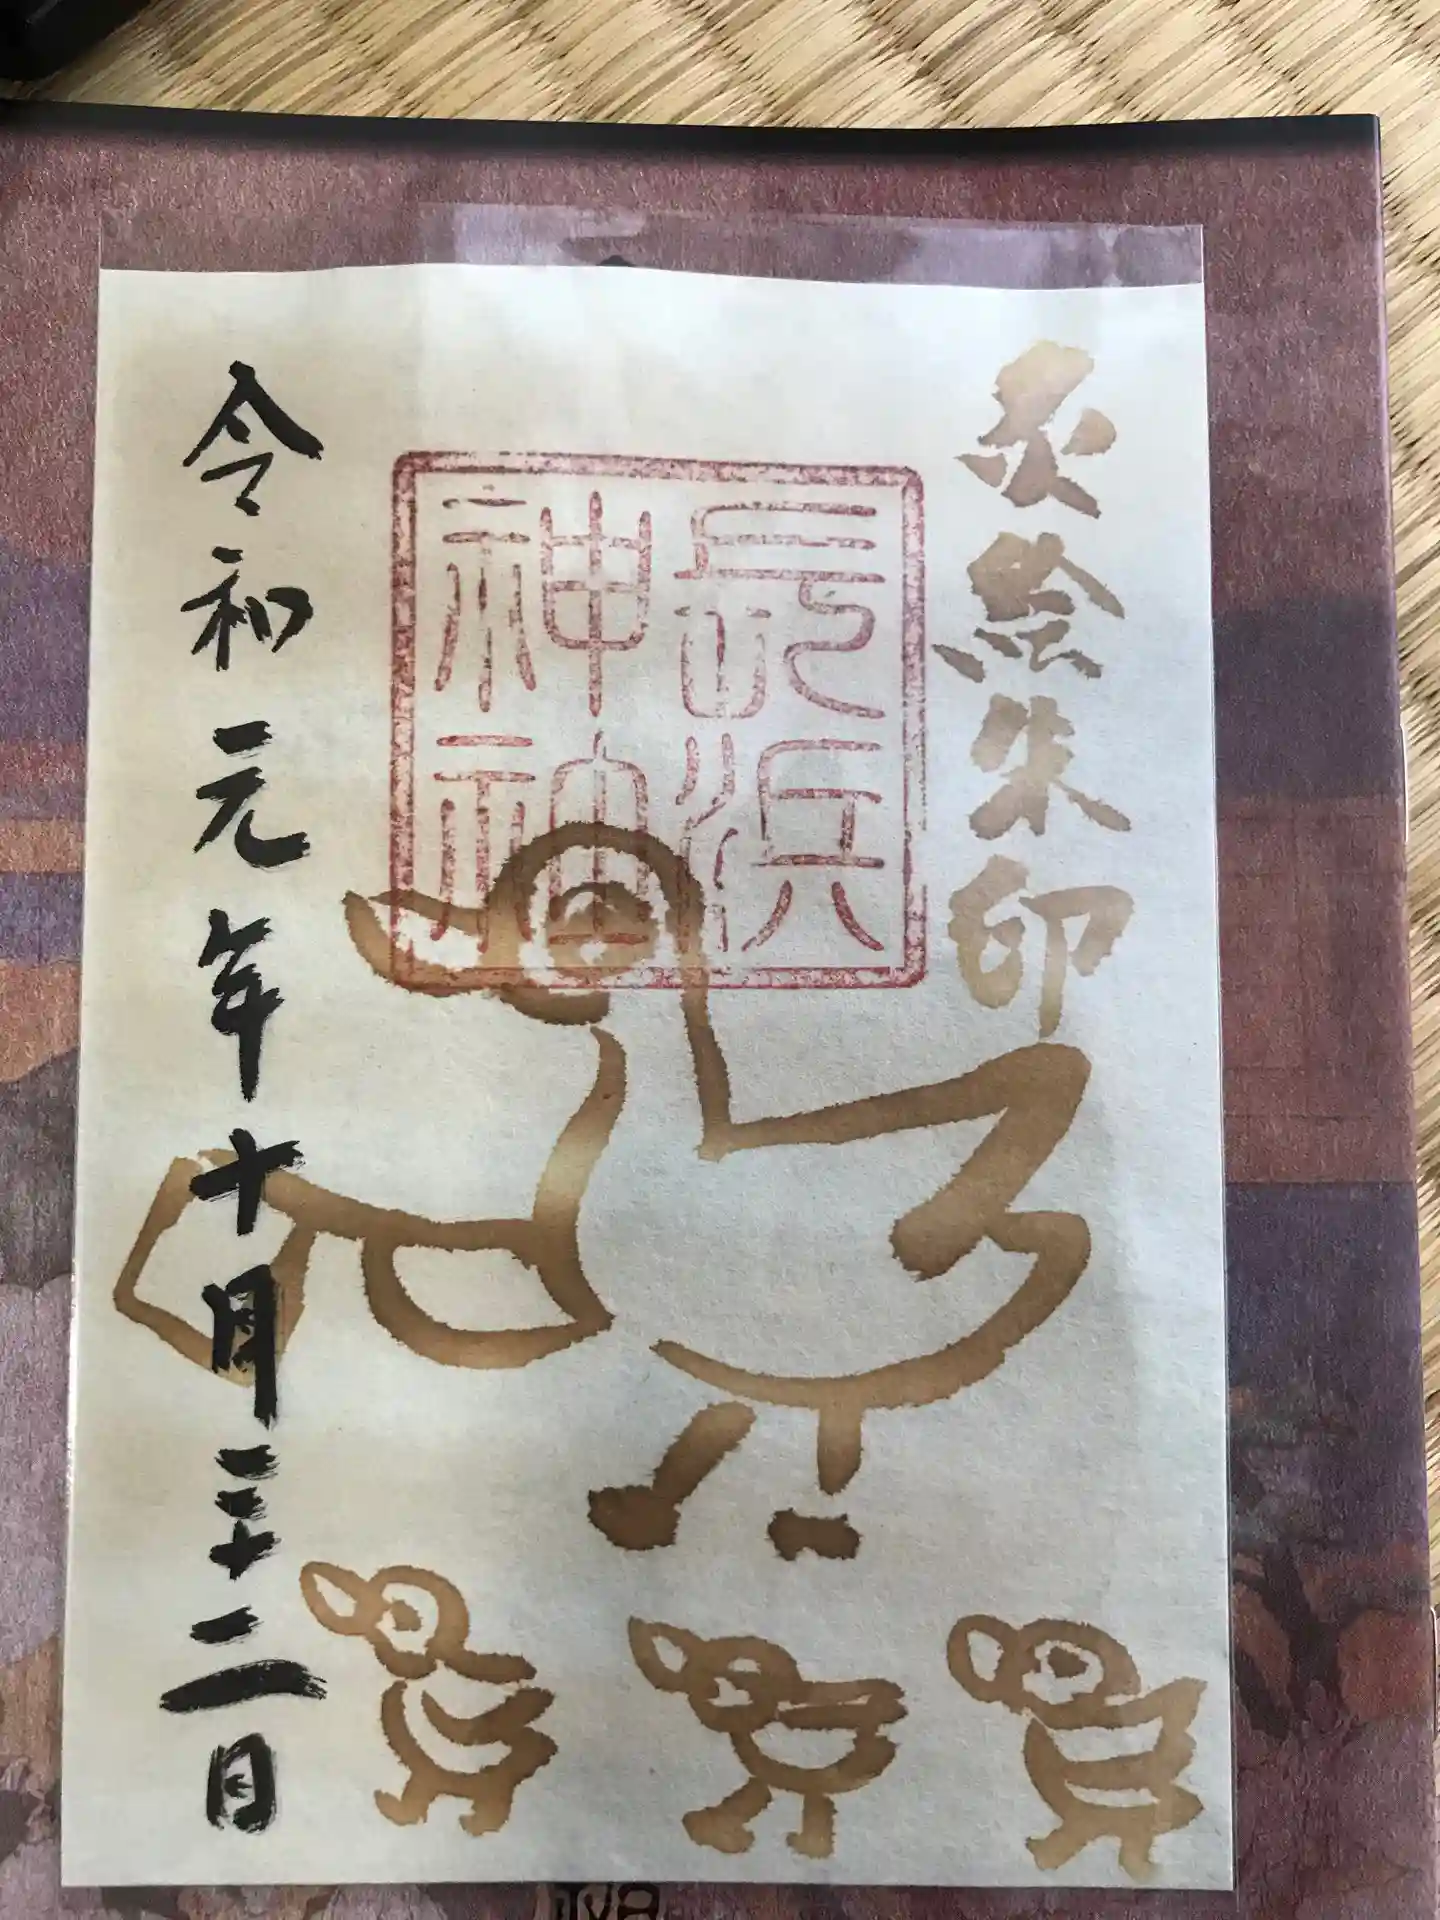 炙絵朱印
長浜
神社
令和元年十月二十二日